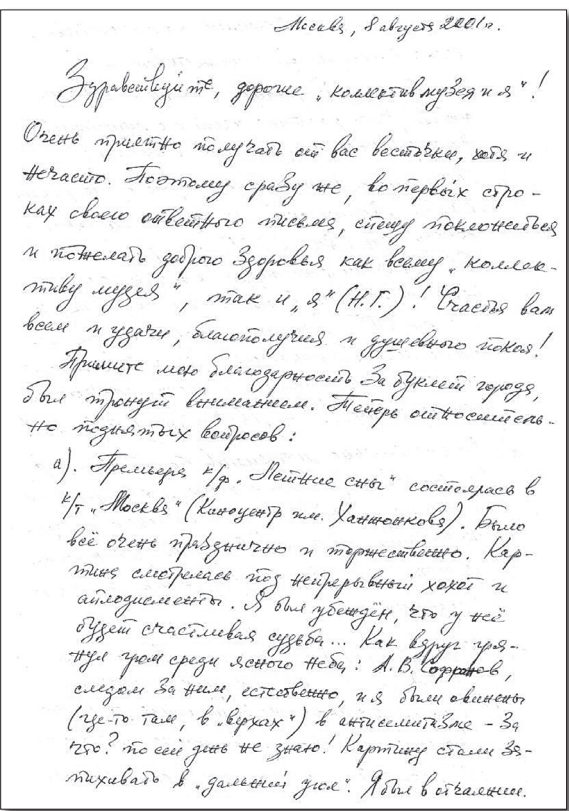 Москва, 8 августа 2001 г.
Здравствуйте, дорогие „коллектив музея и я“!
Очень приятно получать от вас весточки, хотя и
нечасто. Поэтому сразу же, во первых стро-
ках своего ответного письма, спешу поклониться
и пожелать доброго здоровья как всему „коллек-
тиву музея“, так и „я“ (Н.Г.)! Счастья вам
всем и удачи, благополучия и душевного покоя!
Примите мою благодарность за буклет города,
был тронут вниманием. Теперь относитель-
но поднятых вопросов:
а). Премьера к/ф. „Летние сны“ состоялась в
к/т „Москва“ (Киноцентр им. Ханжонкова). Было
всё очень празднично и торжественно. Кар-
тина смотрелась под непрерывный хохот и
аплодисменты. Я был убеждён, что у неё
будет счастливая судьба... Как вдруг гря-
нул гром среди ясного неба: А.В. Софронов,
следом за ним, естественно, и я были обвинены
(где-то там, в „верхах“) в антисемитизме – за
что? по сей день не знаю! Картину стали за-
пихивать в „дальний угол“. Я был в отчаянии.